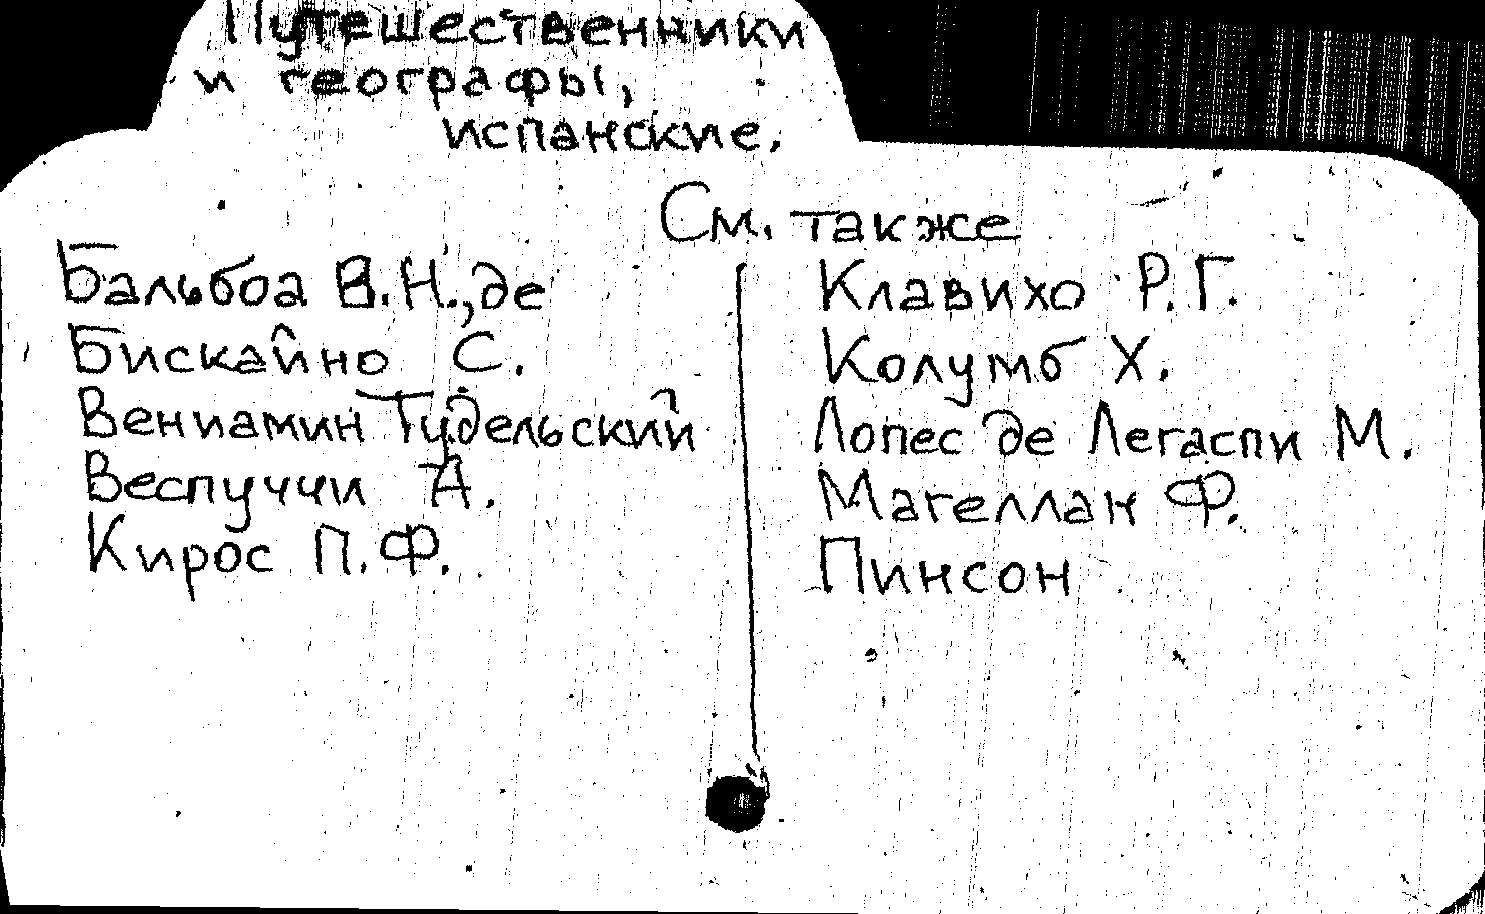 Путешественники
и географы,
испанские.
См. также
Бальбоа В.Н., де
Бискайно С.
Вениамин Тудельский
Веспуччи А.
Кирос П.Ф.
Клавихо Р.Г.
Колумб Х.
Лопес де Легаспи М.
Магеллан Ф.
Пинсон